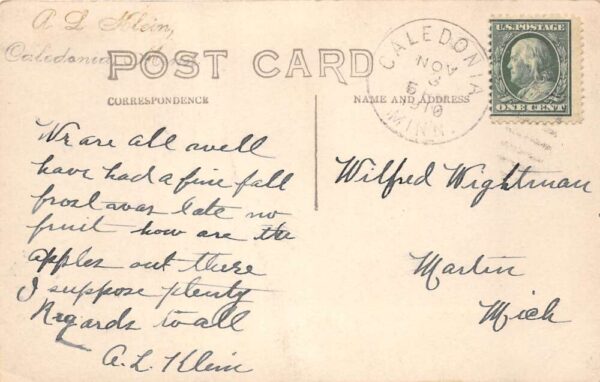 A L Klein,
Caledonia Minn
POST CARD
CORRESPONDENCE
NAME AND ADDRESS
CALEDONIA
NOV
3
1910
MINN.
U.S. POSTAGE
ONE CENT
We are all well
have had a fine fall
frost was late no
fruit how are the
apples out there
I suppose plenty
Regards to all
A.L. Klein
Wilfred Wightman
Martin
Mich